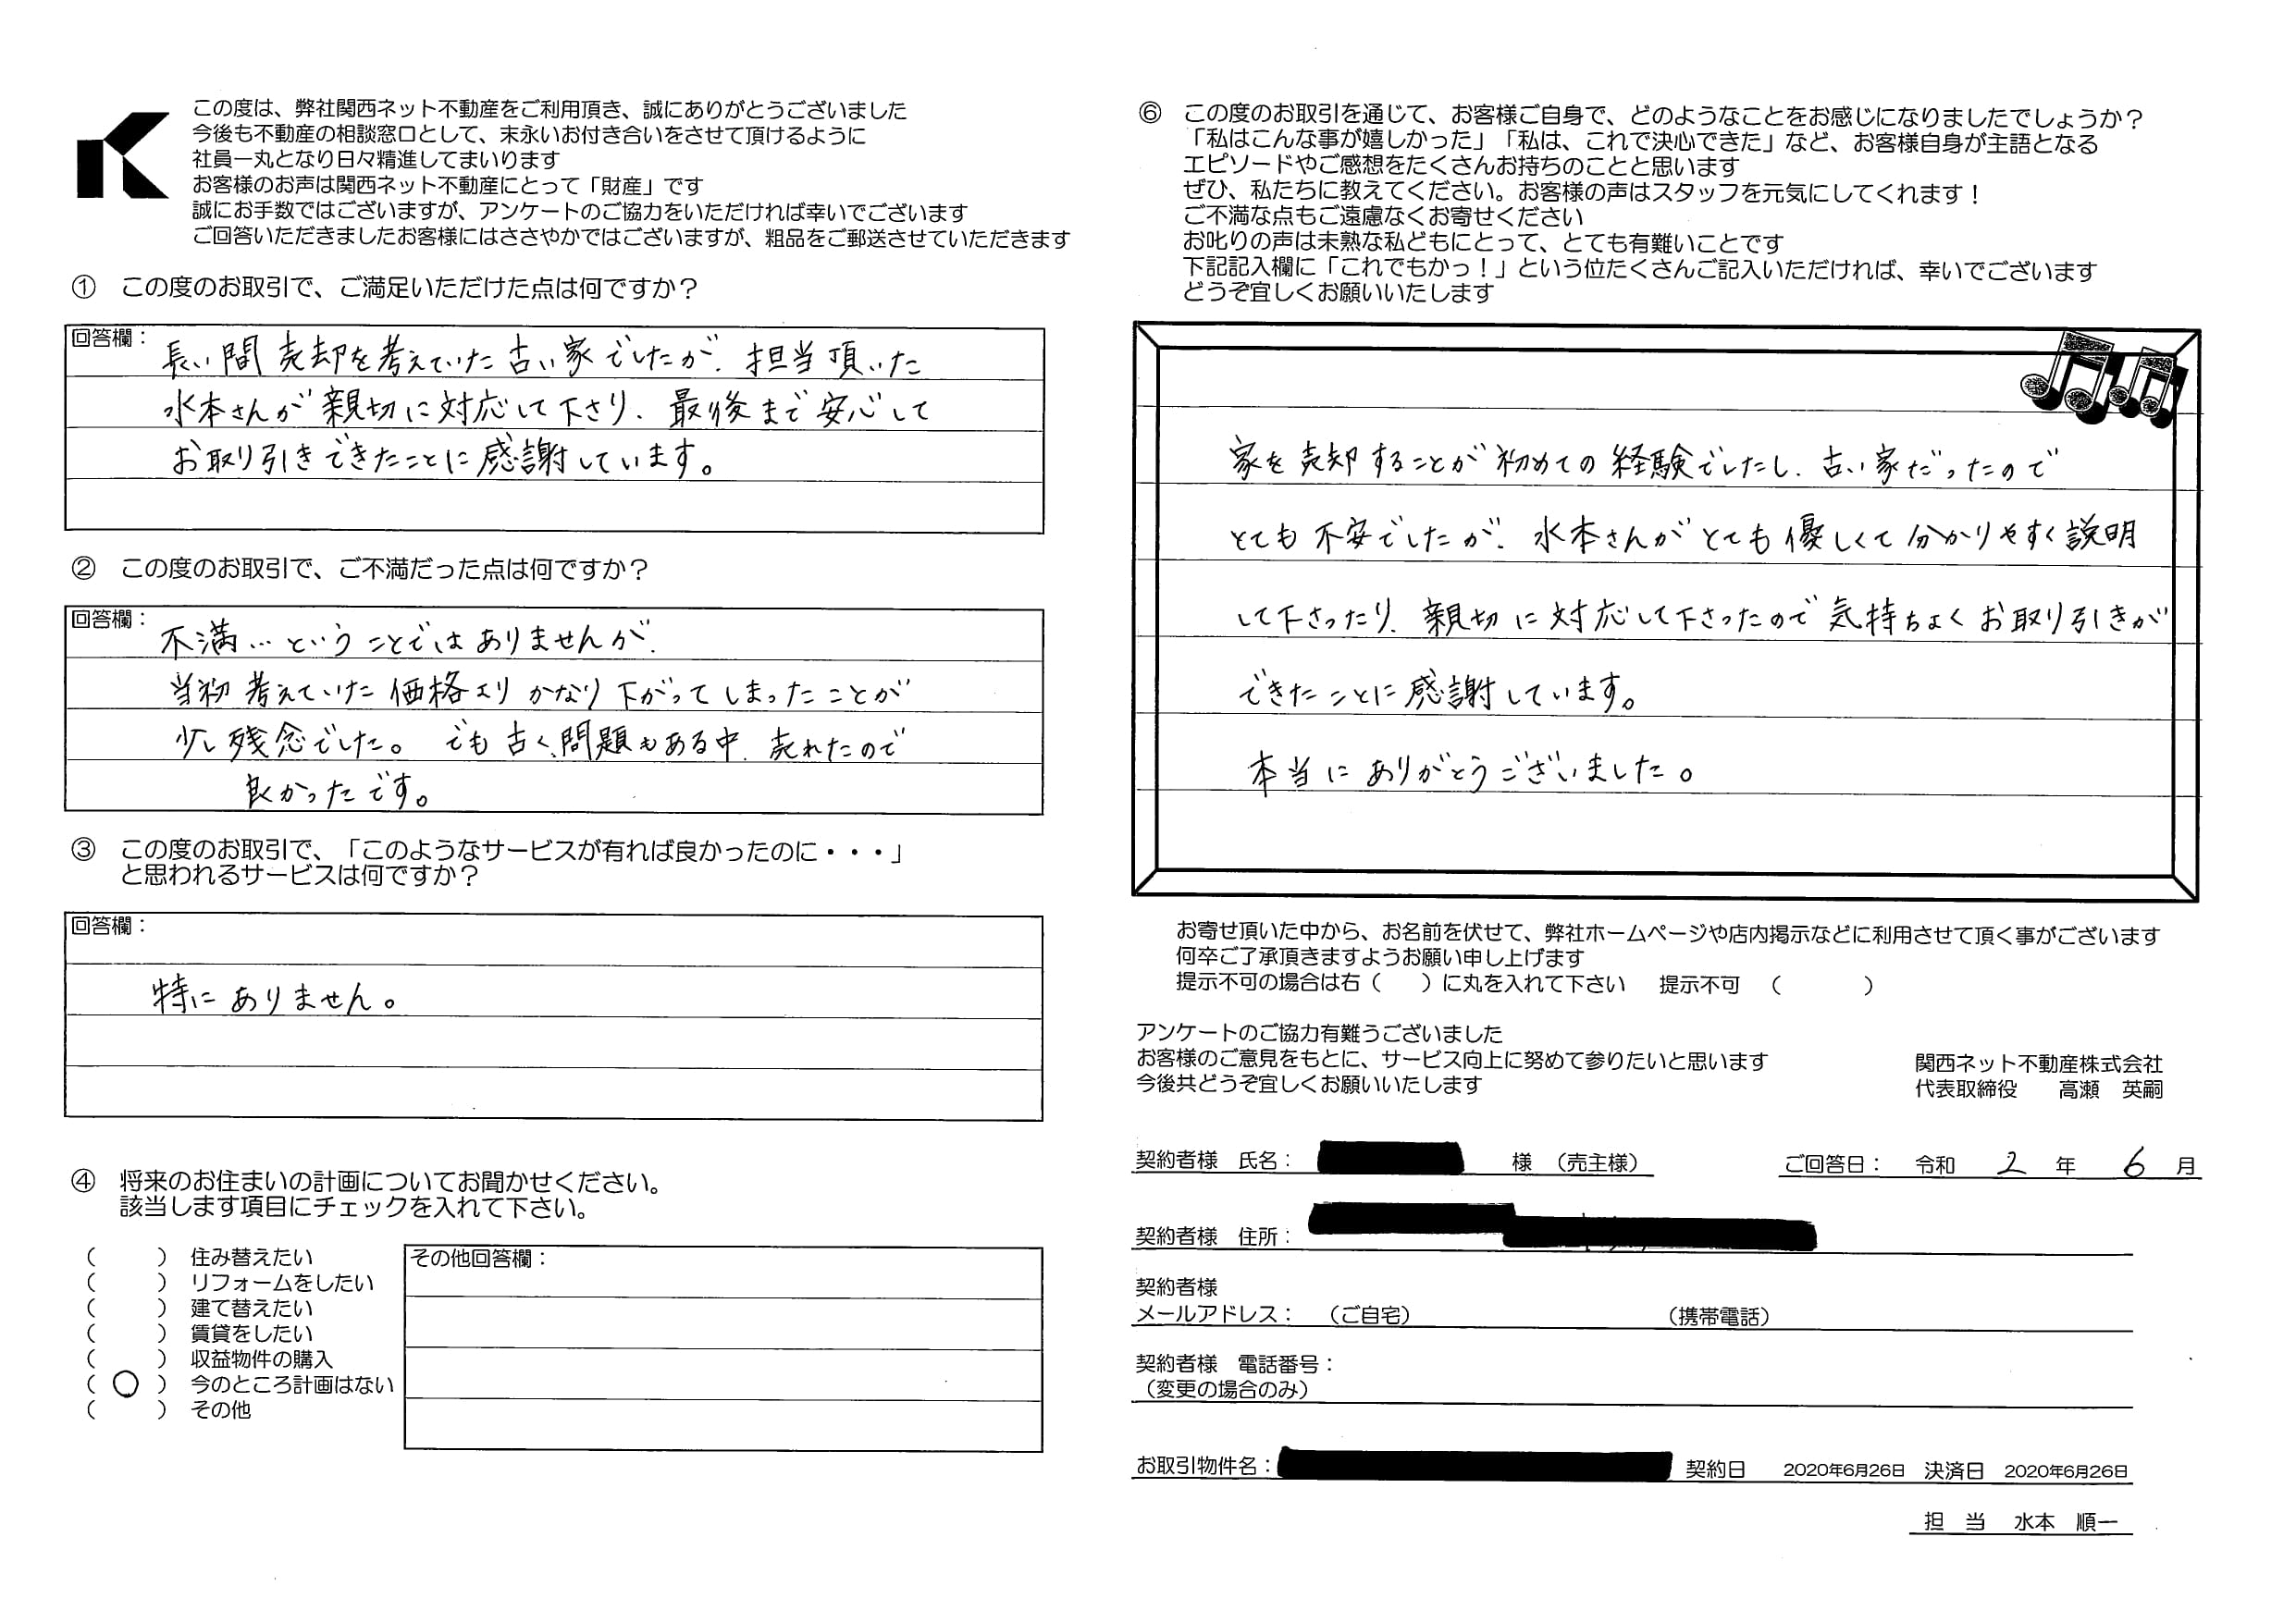 この度は、弊社関西ネット不動産をご利用頂き、誠にありがとうございました
今後も不動産の相談窓口として、末永いお付き合いをさせて頂けるように
社員一丸となり日々精進してまいります
お客様のお声は関西ネット不動産にとって「財産」です
誠にお手数ではございますが、アンケートのご協力をいただければ幸いでございます
ご回答いただきましたお客様にはささやかではございますが、粗品をご郵送させていただきます
① この度のお取引で、ご満足いただけた点は何ですか？
回答欄：
長い間 売却を考えていた古い家でしたが、担当頂いた
水本さんが親切に対応して下さり、最後まで安心して
お取り引きできたことに感謝しています。
② この度のお取引で、ご不満だった点は何ですか？
回答欄：
不満…ということではありませんが、
当初考えていた価格よりかなり下がってしまったことが
少し残念でした。でも古く、問題もある中、売れたので
良かったです。
③ この度のお取引で、「このようなサービスが有れば良かったのに・・・」
と思われるサービスは何ですか？
回答欄：
特にありません。
④ 将来のお住まいの計画についてお聞かせください。
該当します項目にチェックを入れて下さい。
（　　）住み替えたい
（　　）リフォームをしたい
（　　）建て替えたい
（　　）賃貸をしたい
（　　）収益物件の購入
（ ○ ）今のところ計画はない
（　　）その他
その他回答欄：
⑥ この度のお取引を通じて、お客様ご自身で、どのようなことをお感じになりましたでしょうか？
「私はこんな事が嬉しかった」「私は、これで決心できた」など、お客様自身が主語となる
エピソードやご感想をたくさんお持ちのことと思います
ぜひ、私たちに教えてください。お客様の声はスタッフを元気にしてくれます！
ご不満な点もご遠慮なくお寄せください
お叱りの声は未熟な私どもにとって、とても有難いことです
下記記入欄に「これでもかっ！」という位たくさんご記入いただければ、幸いでございます
どうぞ宜しくお願いいたします
家を売却することが初めての経験でしたし、古い家だったので
とても不安でしたが、水本さんがとても優しくて分かりやすく説明
して下さったり、親切に対応して下さったので気持ちよくお取り引きが
できたことに感謝しています。
本当にありがとうございました。
お寄せ頂いた中から、お名前を伏せて、弊社ホームページや店内掲示などに利用させて頂く事がございます
何卒ご了承頂きますようお願い申し上げます
提示不可の場合は右（　）に丸を入れて下さい　提示不可（　　）
アンケートのご協力有難うございました
お客様のご意見をもとに、サービス向上に努めて参りたいと思います
今後共どうぞ宜しくお願いいたします
関西ネット不動産株式会社
代表取締役　高瀬　英嗣
契約者様　氏名：　様　（売主様）　ご回答日：　令和　2　年　6　月
契約者様　住所：
契約者様
メールアドレス：　（ご自宅）　（携帯電話）
契約者様　電話番号：
（変更の場合のみ）
お取引物件名：　契約日　2020年6月26日　決済日　2020年6月26日
担　当　水本　順一